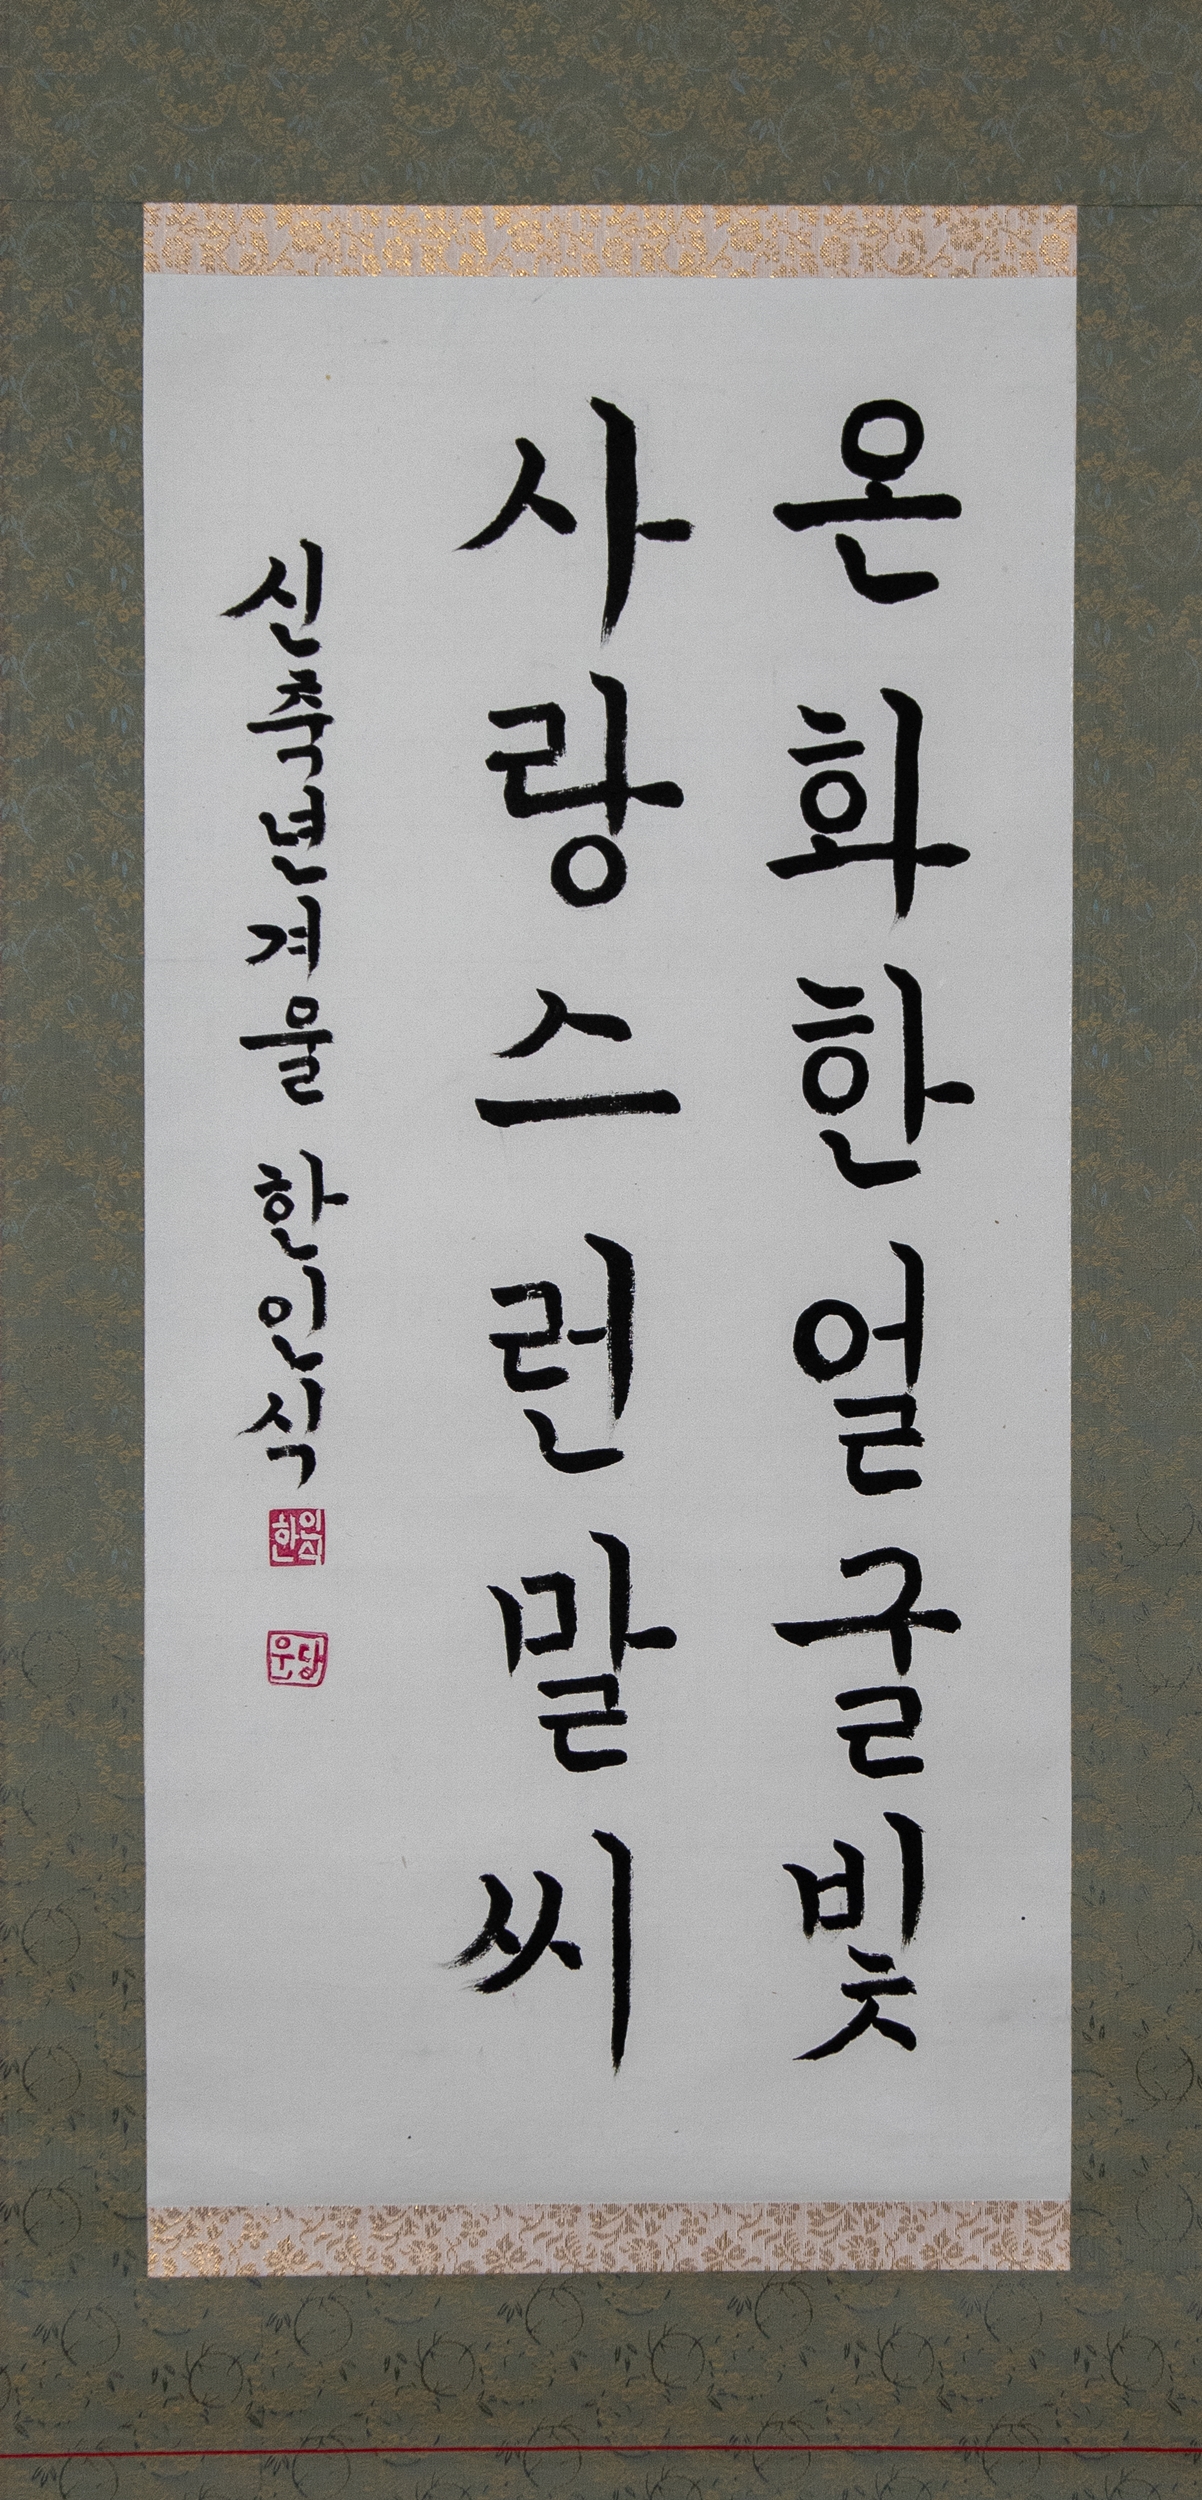 온화한얼굴빛
사랑스런말씨
신축년겨울 한인식
한인식
우당